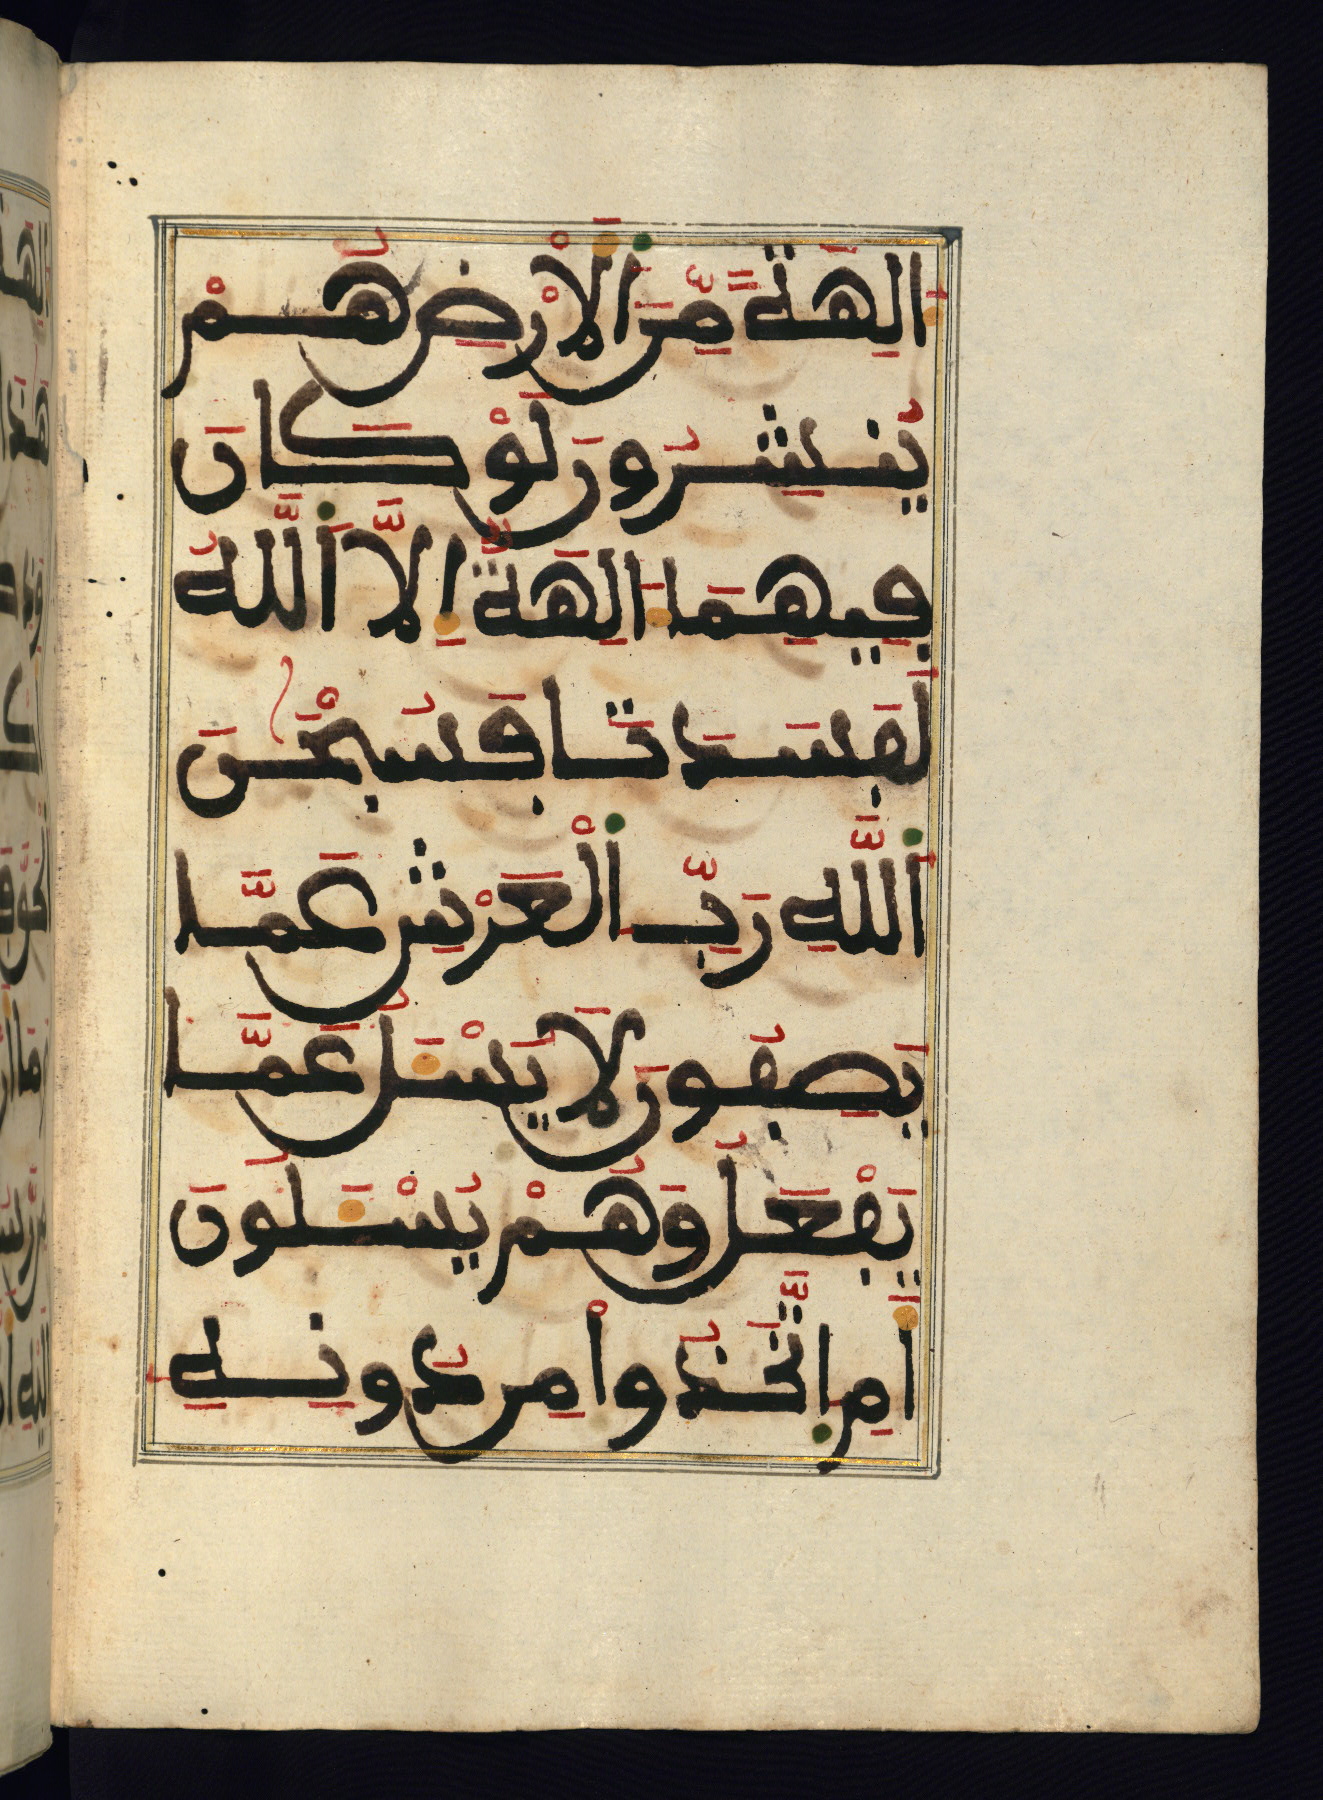 ءَالِهَةٗ مِّنَ اَلَارْضِ هُمْ
يُنشِرُونَ لَوْ كَانَ
فِيهِمَا ءَالِهَةٌ اِلَّا اَللَّهُ
لَفَسَدَتَا فَسُبْحَٰنَ
اَللَّهِ رَبِّ اِلْعَرْشِ عَمَّا
يَصِفُونَ لَا يُسْـَٔلُ عَمَّا
يَفْعَلُ وَهُمْ يُسْـَٔلُونَ
أَمِ اِتَّخَذُواْ مِن دُونِهِ